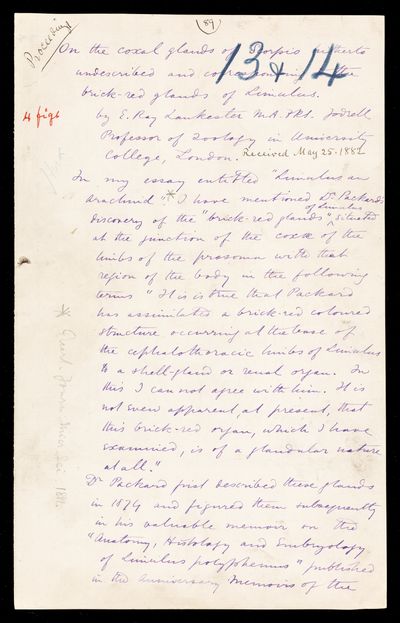 Proceedings
(89)
13 & 14
On the coxal glands of Scorpio hitherto
undescribed and corresponding to the
brick-red glands of Limulus.
4 figs
by E. Ray Lankester M.A. FRS. Jodrell
Professor of Zoology in University
College, London. Received May 25 - 1882
In my essay entitled "Limulus an
Arachnid"* I have mentioned Dr. Packard's
discovery of the "brick-red glands" of Limulus situated
at the junction of the coxæ of the
limbs of the prosoma with that
region of the body in the following
terms "It is true that Packard
has assimilated a brick-red coloured
structure occurring at the base of
the cephalothoracic limbs of Limulus
to a shell-gland or renal organ. In
this I can not agree with him. It is
not even apparent, at present, that
this brick-red organ, which I have
examined, is of a glandular nature
at all."
* Quart. Journ. Micr. Sci. 1881.
Dr Packard first described these glands
in 1874 and figured them subsequently
in his valuable memoir on the
"Anatomy, Histology and Embryology
of Limulus polyphemus" published
in the Anniversary Memoirs of the